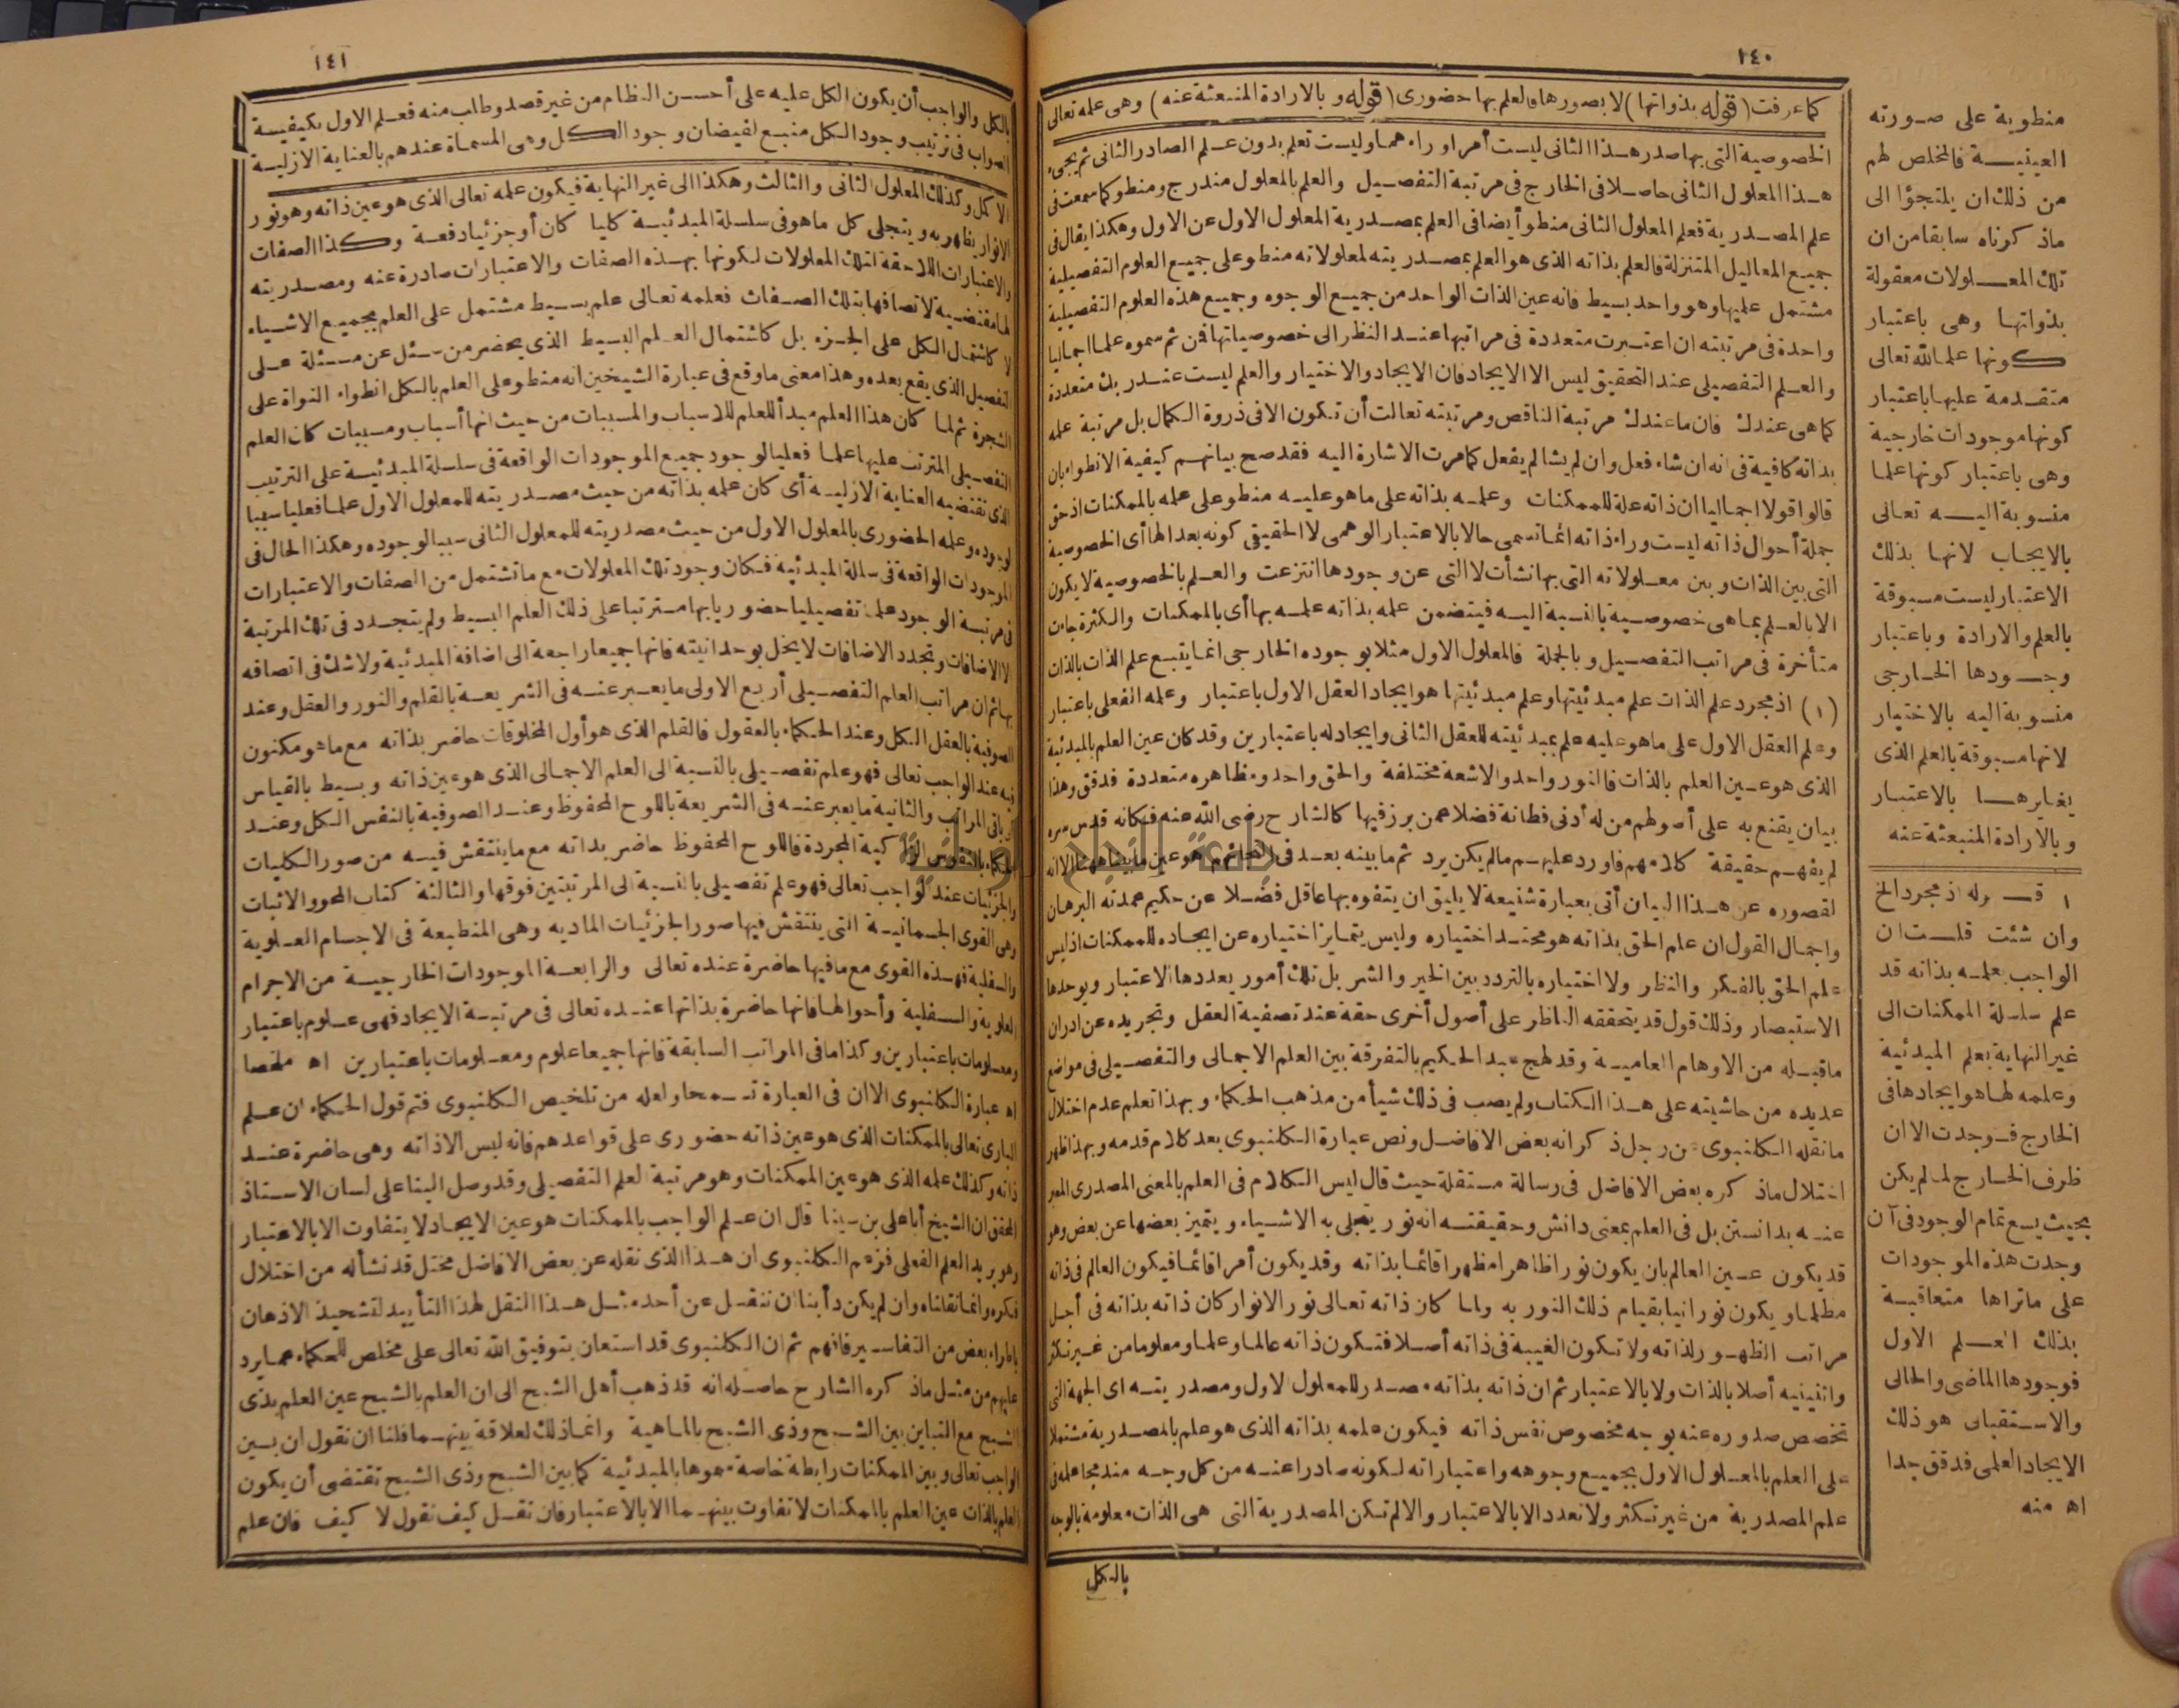 ١٤٠
كما عرفت (قوله بذواتها) لا بصورها فالعلم بها حضورى (قوله و بالارادة المنبعثة عنه) وهى علمه تعالى
الخصوصية التى بها صدر هذا الثانى ليست أمرا وراءهما وليست تعلم بدون علم الصادر الثانى ثم يجىء
هذا المعلول الثانى حاصلا فى الخارج فى مرتبة التفصيل والعلم بالمعلول مندرج ومنطو كما سمعت فى
علم المصدرية فعلم المعلول الثانى منطو أيضا فى العلم بمصدرية المعلول الاول عن الاول وهكذا يقال فى
جميع المعاليل المتنزلة فالعلم بذاته الذى هو العلم بمصدريته لمعلولاته منطو على جميع العلوم التفصيلية
مشتمل عليها وهو واحد بسيط فانه عين الذات الواحد من جميع الوجوه وجميع هذه العلوم التفصيلية
واحدة فى مرتبته ان اعتبرت متعددة فى مراتبها عند النظر الى خصوصياتها فن ثم سموه علما اجماليا
والعلم التفصيلى عند التحقيق ليس الا الايجاد فان الايجاد والاختيار والعلم ليست عند ربك متعددة
كما هى عندك فان ما عندك مرتبة الناقص ومرتبته تعالت أن تكون الا فى ذروة الكمال بل مرتبة علمه
بذاته كافية فى انه ان شاء فعل وان لم يشا لم يفعل كما مرت الاشارة اليه فقد صح بيانهم كيفية الانطواء بان
قالوا قولا اجماليا ان ذاته علة للممكنات وعلمه بذاته على ما هو عليه منطو على علمه بالممكنات اذ حق
جملة أحوال ذاته ليست وراء ذاته انما تسمى حالا بالاعتبار الوهمى لا الحقيقى كونه بعد الها أى الخصوصية
التى بين الذات و بين معلولاته التى بها نشأت لا التى عن وجودها انتزعت والعلم بالخصوصية لا يكون
الا بالعلم بما هى خصوصية بالنسبة اليه فيتضمن علمه بذاته علمه بها أى بالممكنات والكثرة جاءت
متأخرة فى مراتب التفصيل و بالجملة فالمعلول الاول مثلا بوجوده الخارجى انما يتبع علم الذات بالذات
(١) اذ مجرد علم الذات علم مبدئيتها وعلم مبدئيتها هو ايجاد العقل الاول باعتبار وعلمه الفعلى باعتبار
وعلم العقل الاول على ما هو عليه علم بمبدئيته للعقل الثانى وايجاد له باعتبارين وقد كان عين العلم بالمبدئية
الذى هو عين العلم بالذات فالنور واحد والاشعة مختلفة والحق واحد ومظاهره متعددة فدقق وهذا
بيان يقنع به على أصولهم من له أدنى فطانة فضلا عمن برز فيها كالشارح رضى الله عنه فكانه قدس سره
لم يفهم حقيقة كلامهم فاورد عليهم ما لم يكن يرد ثم ما بينه بعد فى الحاشية هو عين ما بيناه هنا الا انه
لقصوره عن هذا البيان أتى بعبارة شنيعة لا يليق ان يتفوه بها عاقل فضلا عن حكيم عمدته البرهان
واجمال القول ان علم الحق بذاته هو محتد اختياره وليس يتمايز اختياره عن ايجاده للممكنات اذ ليس
علم الحق بالفكر والنظر ولا اختياره بالتردد بين الخير والشر بل تلك أمور يعددها الاعتبار و يوحدها
الاستبصار وذلك قول قد يتحققه الناظر على أصول أخرى حقة عند تصفية العقل وتجريده عن ادران
ما قبله من الاوهام العامية وقد لهج عبد الحكيم بالتفرقة بين العلم الاجمالى والتفصيلى فى مواضع
عديده من حاشيته على هذا الكتاب ولم يصب فى ذلك شيأ من مذهب الحكماء و بهذا تعلم عدم اختلال
ما نقله الكلنبوى عن رجل ذكر انه بعض الافاضل ونص عبارة الكلنبوى بعد كلام قدمه و بهذا ظهر
اختلال ما ذكره بعض الافاضل فى رسالة مستقلة حيث قال ليس الكلام فى العلم بالمعنى المصدرى المعبر
عنه بدانستن بل فى العلم بمعنى دانش وحقيقته انه نور يتجلى به الاشياء و يتميز بعضها عن بعض وهو
قد يكون عين العالم بان يكون نورا ظاهرا مظهرا قائما بذاته وقد يكون أمرا قائما فيكون العالم فى ذاته
مظلما و يكون نورانيا بقيام ذلك النور به ولما كان ذاته تعالى نور الانوار كان ذاته بذاته فى أجل
مراتب الظهور لذاته ولا تكون الغيبة فى ذاته أصلا فتكون ذاته عالما وعلما ومعلوما من غير تكثر
واثنينية أصلا بالذات ولا بالاعتبار ثم ان ذاته بذاته مصدر للمعلول الاول ومصدريته اى الجهة التى
تخصص صدوره عنه بوجه مخصوص نفس ذاته فيكون علمه بذاته الذى هو علم بالمصدرية مشتملا
على العلم بالمعلول الاول بجميع وجوهه واعتباراته لكونه صادرا عنه من كل وجه مندمجا علمه فى
علم المصدرية من غير تكثر ولا تعدد الا بالاعتبار والا لم تكن المصدرية التى هى الذات معلومة بالوجه
بالكل
منطوية على صورته
العينية فالمخلص لهم
من ذلك ان يلتجؤا الى
ماذكرناه سابقا من ان
تلك المعلولات معقولة
بذواتها وهى باعتبار
كونها علما لله تعالى
متقدمة عليها باعتبار
كونها موجودات خارجية
وهى باعتبار كونها علما
منسوبة اليه تعالى
بالايجاب لانها بذلك
الاعتبار ليست مسبوقة
بالعلم والارادة وباعتبار
وجودها الخارجى
منسوبة اليه بالاختيار
لانها مسبوقة بالعلم الذى
يغايرها بالاعتبار
و بالارادة المنبعثة عنه
١ قوله اذ مجرد الخ
وان شئت قلت ان
الواجب بعلمه بذاته قد
علم سلسلة الممكنات الى
غير النهاية بعلم المبدئية
وعلمه لها هو ايجادها فى
الخارج فوجدت الا ان
ظرف الخارج لما لم يكن
بحيث يسع تمام الوجود فى آن
وجدت هذه الموجودات
على ماتراها متعاقبة
بذلك العلم الاول
فوجودها الماضى والحالى
والاستقبالى هو ذلك
الايجاد العلمى فدقق جدا
اه منه
١٤١
بالكل والواجب أن يكون الكل عليه على أحسن النظام من غير قصد وطلب منه فعلم الاول بكيفية
الصواب فى ترتيب وجود الكل منبع لفيضان وجود الكل وهى المسماة عندهم بالعناية الازلية
الاكمل وكذلك المعلول الثانى والثالث وهكذا الى غير النهاية فيكون علمه تعالى الذى هو عين ذاته وهو نور
الانوار يظهر به و يتجلى كل ما هو فى سلسلة المبدئية كليا كان أو جزئيا دفعة وكذا الصفات
والاعتبارات اللاحقة لتلك المعلولات لكونها بهذه الصفات والاعتبارات صادرة عنه ومصدريته
لها مقتضية لاتصافها بتلك الصفات فعلمه تعالى علم بسيط مشتمل على العلم بجميع الاشياء
لا كاشتمال الكل على الجزء بل كاشتمال العلم البسيط الذى يحضر من سئل عن مسئلة على
التفصيل الذى يقع بعده وهذا معنى ما وقع فى عبارة الشيخين انه منطو على العلم بالكل انطواء النواة على
الشجرة ثم لما كان هذا العلم مبدأ للعلم للاسباب والمسببات من حيث انها أسباب ومسببات كان العلم
التفصيلى المترتب عليها علما فعليا لوجود جميع الموجودات الواقعة فى سلسلة المبدئية على الترتيب
الذى تقتضيه العناية الازلية أى كان علمه بذاته من حيث مصدريته للمعلول الاول علما فعليا سببا
لوجوده وعلمه الحضورى بالمعلول الاول من حيث مصدريته للمعلول الثانى سببا لوجوده وهكذا الحال فى
الموجودات الواقعة فى سلسلة المبدئية فكان وجود تلك المعلولات مع ما تشتمل من الصفات والاعتبارات
فى مرتبة الوجود علما تفصيليا حضوريا بها مترتبا على ذلك العلم البسيط ولم يتجدد فى تلك المرتبة
الا الاضافات وتجدد الاضافات لا يخل بوحدانيته فانها جميعا راجعة الى اضافة المبدئية ولا شك فى اتصافه
بها ثم ان مراتب العلم التفصيلى أربع الاولى ما يعبر عنه فى الشريعة بالقلم والنور والعقل وعند
الصوفية بالعقل الكل وعند الحكماء بالعقول فالقلم الذى هو أول المخلوقات حاضر بذاته مع ما هو مكنون
فيه عند الواجب تعالى فهو علم تفصيلى بالنسبة الى العلم الاجمالى الذى هو عين ذاته و بسيط بالقياس
الى باقى المراتب والثانية ما يعبر عنه فى الشريعة باللوح المحفوظ وعند الصوفية بالنفس الكل وعند
الحكماء بالنفوس الفلكية المجردة فاللوح المحفوظ حاضر بذاته مع ما ينتقش فيه من صور الكليات
والجزئيات عند الواجب تعالى فهو علم تفصيلى بالنسبة الى المرتبتين فوقها والثالثة كتاب المحو والاثبات
وهى القوى الجسمانية التى ينتقش فيها صور الجزئيات المادية وهى المنطبعة فى الاجسام العلوية
والسفلية فهذه القوى مع ما فيها حاضرة عنده تعالى والرابعة الموجودات الخارجية من الاجرام
العلوية والسفلية وأحوالها فانها حاضرة بذاتها عنده تعالى فى مرتبة الايجاد فهى علوم باعتبار
ومعلومات باعتبارين وكذا ما فى المراتب السابقة فانها جميعا علوم ومعلومات باعتبارين اه ملخصا
اه عبارة الكلنبوى الا ان فى العبارة تسمحا ولعله من تلخيص الكلنبوى فتم قول الحكماء ان علم
البارى تعالى بالممكنات الذى هو عين ذاته حضورى على قواعدهم فانه ليس الا ذاته وهى حاضرة عند
ذاته وكذلك علمه الذى هو عين الممكنات وهو مرتبة العلم التفصيلى وقد وصل الينا على لسان الاستاذ
المحقق ان الشيخ أبا على بن سينا قال ان علم الواجب بالممكنات هو عين الايجاد لا يتفاوت الا بالاعتبار
وهو يريد العلم الفعلى فزعم الكلنبوى ان هذا الذى نقله عن بعض الافاضل مختل قد نشأ له من اختلال
فكره وانما نقلناه وان لم يكن دأبنا ان ننقل عن أحد مثل هذا النقل لهذا التأييد لتشحيذ الاذهان
باطراء بعض من التفاسير فافهم ثم ان الكلنبوى قد استعان بتوفيق الله تعالى على مخلص للحكماء عما يرد
عليهم من مثل ماذكره الشارح حاصله انه قد ذهب أهل الشبح الى ان العلم بالشبح عين العلم بذى
الشبح مع التباين بين الشبح وذى الشبح بالماهية وانما ذلك لعلاقة بينهما فلنا ان نقول ان بين
الواجب تعالى و بين الممكنات رابطة خاصة سموها بالمبدئية كما بين الشبح وذى الشبح تقتضى أن يكون
العلم بالذات عين العلم بالممكنات لا تفاوت بينهما الا بالاعتبار فان نقل كيف نقول لا كيف فان علم